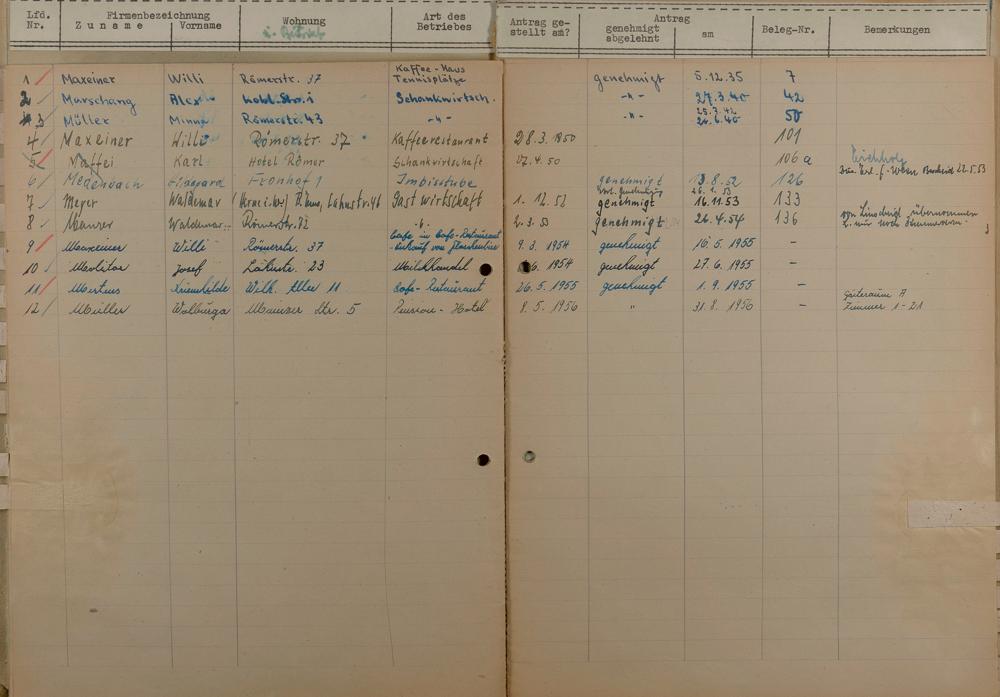 Lfd. Nr. Firmenbezeichnung Zuname Vorname Wohnung u. Betrieb Art des Betriebes Antrag gestellt am? Antrag genehmigt abgelehnt am Beleg-Nr. Bemerkungen
1 Maxeiner Willi Römerstr. 37 Kaffee-Haus Tennisplätze genehmigt 5.12.35 7
2 Marschang Alex Kobl. Str. 1 Schankwirtsch. -"- 27.3.40 42
3 Müller Minna Römerstr. 43 -"- -"- 25.7.42 24.6.40 50
4 Maxeiner Willi Römerstr 37 Kaffeerestaurant 28.3.1950 101
5 Maffei Karl Hotel Römer Schankwirtschaft 27.4.50 106a
6 Medenbach Hildegard Fronhof 1 Imbisstube genehmigt 13.8.52 126
7 Meyer Waldemar Lahnstr. 46 Gastwirtschaft 1.12.52 genehmigt 26.1.53 16.11.53 133
8 Maurer Waldemar Römerstr. 72 -"- 2.3.53 genehmigt 26.4.54 136
9 Maxeiner Willi Römerstr. 37 Cafe in Cafe-Restaurant 9.3.1954 genehmigt 16.5.1955 -
10 Josef 23 Milchhandel 1954 genehmigt 27.6.1955 -
11 Mertens Krienhilde Wilh. Allee 11 Cafe-Restaurant 26.5.1955 genehmigt 1.9.1955 -
12 Müller Walburga Mainzer Str. 5 Pension-Hotel 8.5.1956 " 31.8.1956 - Gästeraum 7 Zimmer 1-21